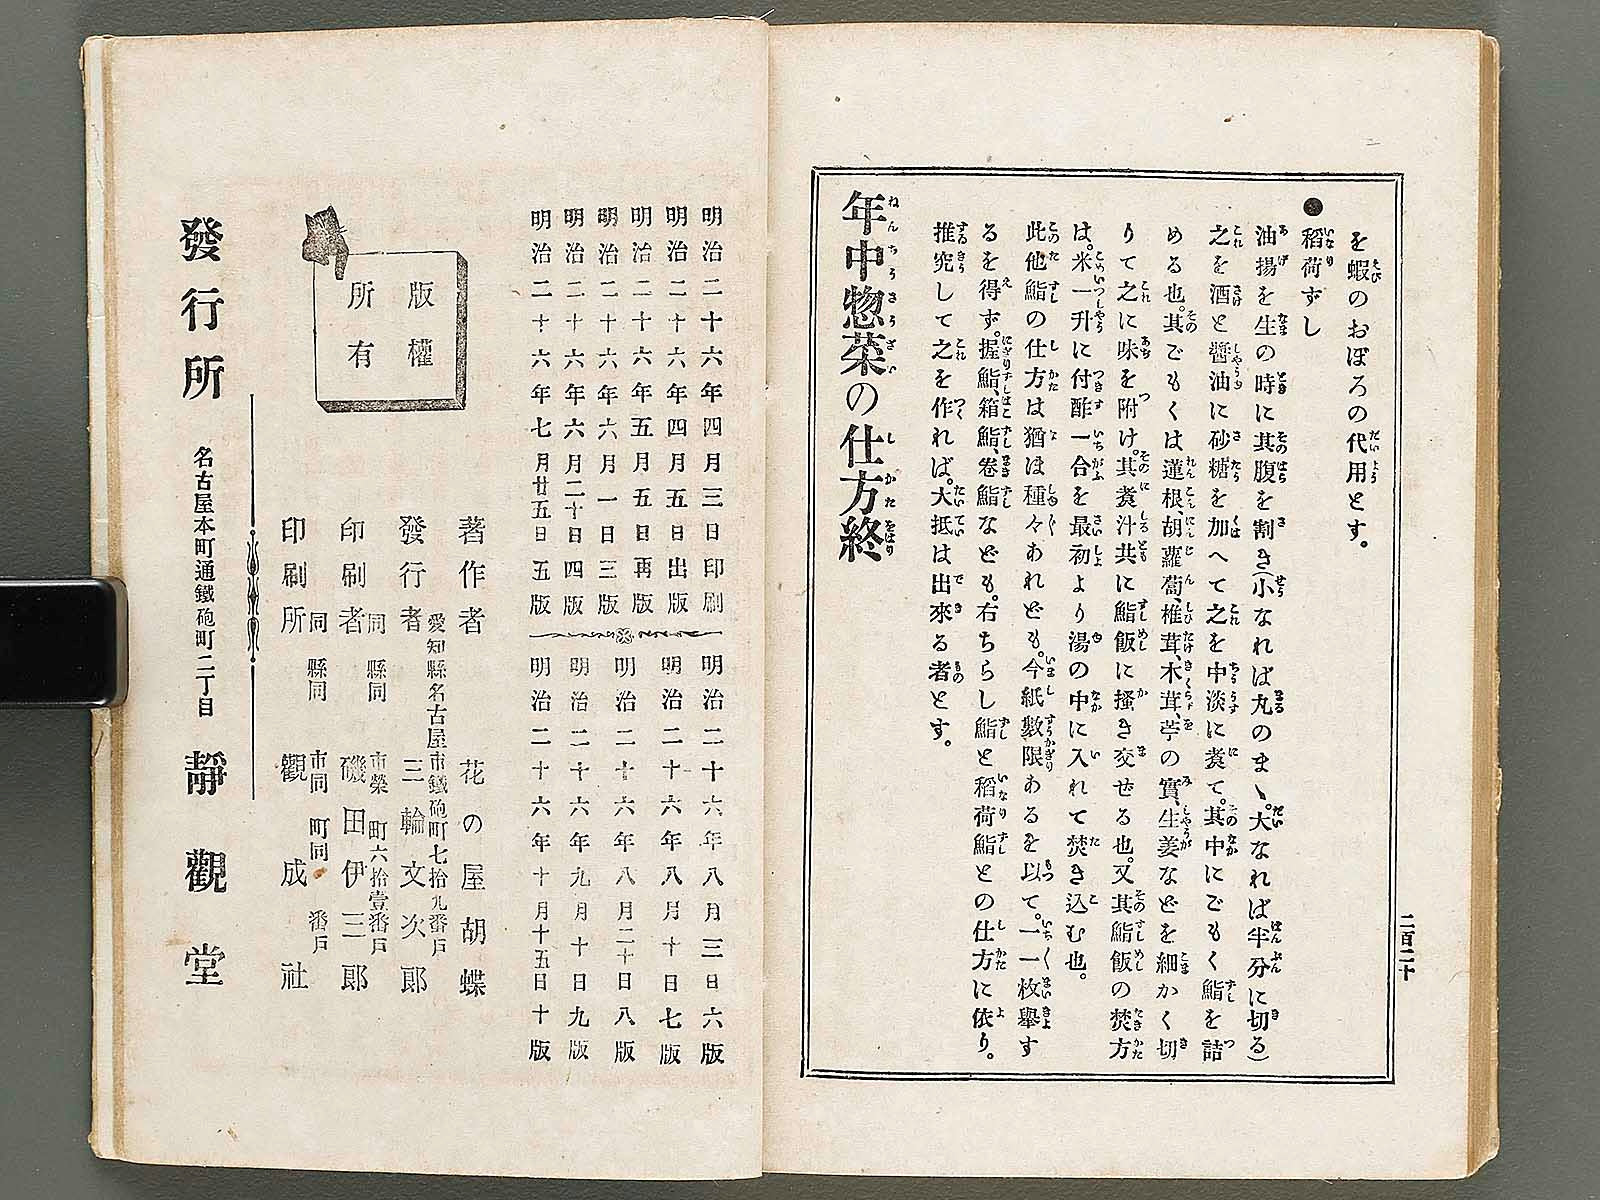 を蝦のおぼろの代用とす。
●稻荷ずし
油揚を生の時に其腹を割き(小なれば丸のまゝ、大なれば半分に切る)
之を酒と醬油に砂糖を加へて之を中淡に煑て。其中にごもく鮨を詰
める也。其ごもくは蓮根、胡蘿蔔、椎茸、木茸、苧の實、生姜などを細かく切
りて之に味を附け。其煑汁共に鮨飯に搔き交せる也。又其鮨飯の焚方
は。米一升に付酢一合を最初より湯の中に入れて焚き込む也。
此他鮨の仕方は猶ほ種々あれども。今紙數限あるを以て。一一枚舉す
るを得ず。握鮨、箱鮨、卷鮨なども。右ちらし鮨と稻荷鮨との仕方に依り。
推究して之を作れば。大抵は出來る者とす。
年中惣菜の仕方終
二百二十
明治二十六年四月三日印刷
明治二十六年四月五日出版
明治二十六年五月五日再版
明治二十六年六月一日三版
明治二十六年六月二十日四版
明治二十六年七月廿五日五版
明治二十六年八月三日六版
明治二十六年八月十日七版
明治二十六年八月二十日八版
明治二十六年九月十日九版
明治二十六年十月十五日十版
版權
所有
著作者 花の屋胡蝶
愛知縣名古屋市鐵砲町七拾九番戶
發行者 三輪文次郞
同縣同市榮町六拾壹番戶
印刷者 磯田伊三郞
同縣同市同町同番戶
印刷所 觀成社
發行所 名古屋本町通鐵砲町二丁目 靜觀堂